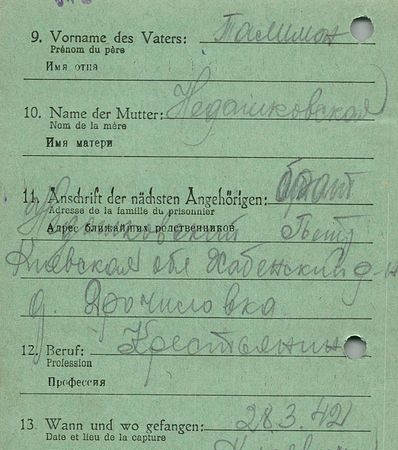 9. Vorname des Vaters: Талимон
Prénom du père
Имя отца
10. Name der Mutter: Недашковская
Nom de la mère
Имя матери
11. Anschrift der nächsten Angehörigen: брат
Adresse de la famille du prisonnier
Недашковский Петр
Адрес ближайших родственников
Киевская обл Хабенский р-н
д.
12. Beruf: Крестьянин
Profession
Профессия
13. Wann und wo gefangen: 28.3.42
Date et lieu de la capture